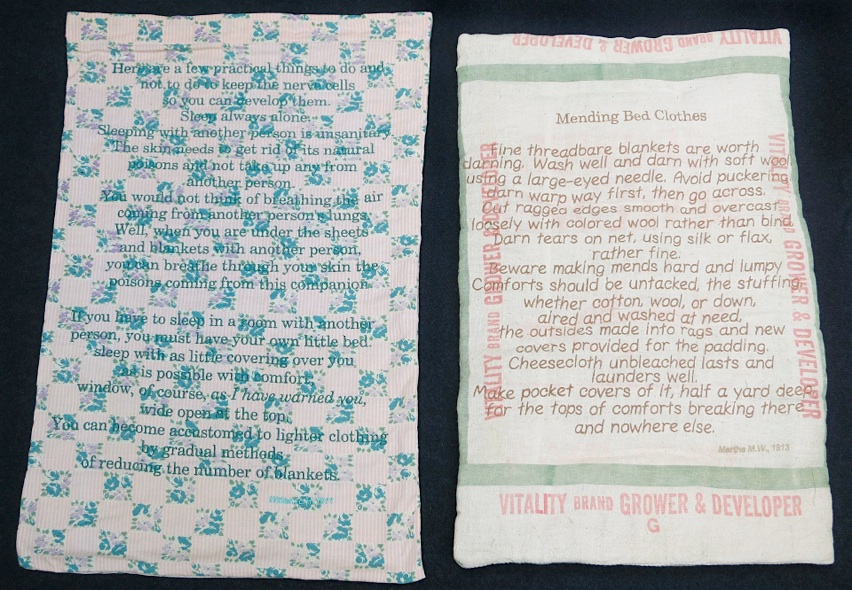 Here are a few practical things to do and
not to do to keep the nerve cells
so you can develop them.
Sleep always alone.
Sleeping with another person is unsanitary.
The skin needs to get rid of its natural
poisons and not take up any from
another person.
You would not think of breathing the air
coming from another person's lungs.
Well, when you are under the sheets
and blankets with another person,
you can breathe through your skin the
poisons coming from this companion.
If you have to sleep in a room with another
person, you must have your own little bed
sleep with as little covering over you
as is possible with comfort,
window, of course, as I have warned you,
wide open at the top.
You can become accustomed to lighter clothing
by gradual methods
of reducing the number of blankets.
VITALITY BRAND GROWER & DEVELOPER
Mending Bed Clothes
Fine threadbare blankets are worth
darning. Wash well and darn with soft wool
using a large-eyed needle. Avoid puckering
darn warp way first, then go across.
Cut ragged edges smooth and overcast
loosely with colored wool rather than bind.
Darn tears on net, using silk or flax,
rather fine.
Beware making mends hard and lumpy
Comforts should be untacked, the stuffing,
whether cotton, wool, or down,
aired and washed at need,
the outsides made into rags and new
covers provided for the padding.
Cheesecloth unbleached lasts and
launders well.
Make pocket covers of it, half a yard deep,
for the tops of comforts breaking there
and nowhere else.
Martha M.W., 1913
VITALITY BRAND GROWER & DEVELOPER
VITALITY BRAND GROWER & DEVELOPER
VITALITY BRAND GROWER & DEVELOPER
G